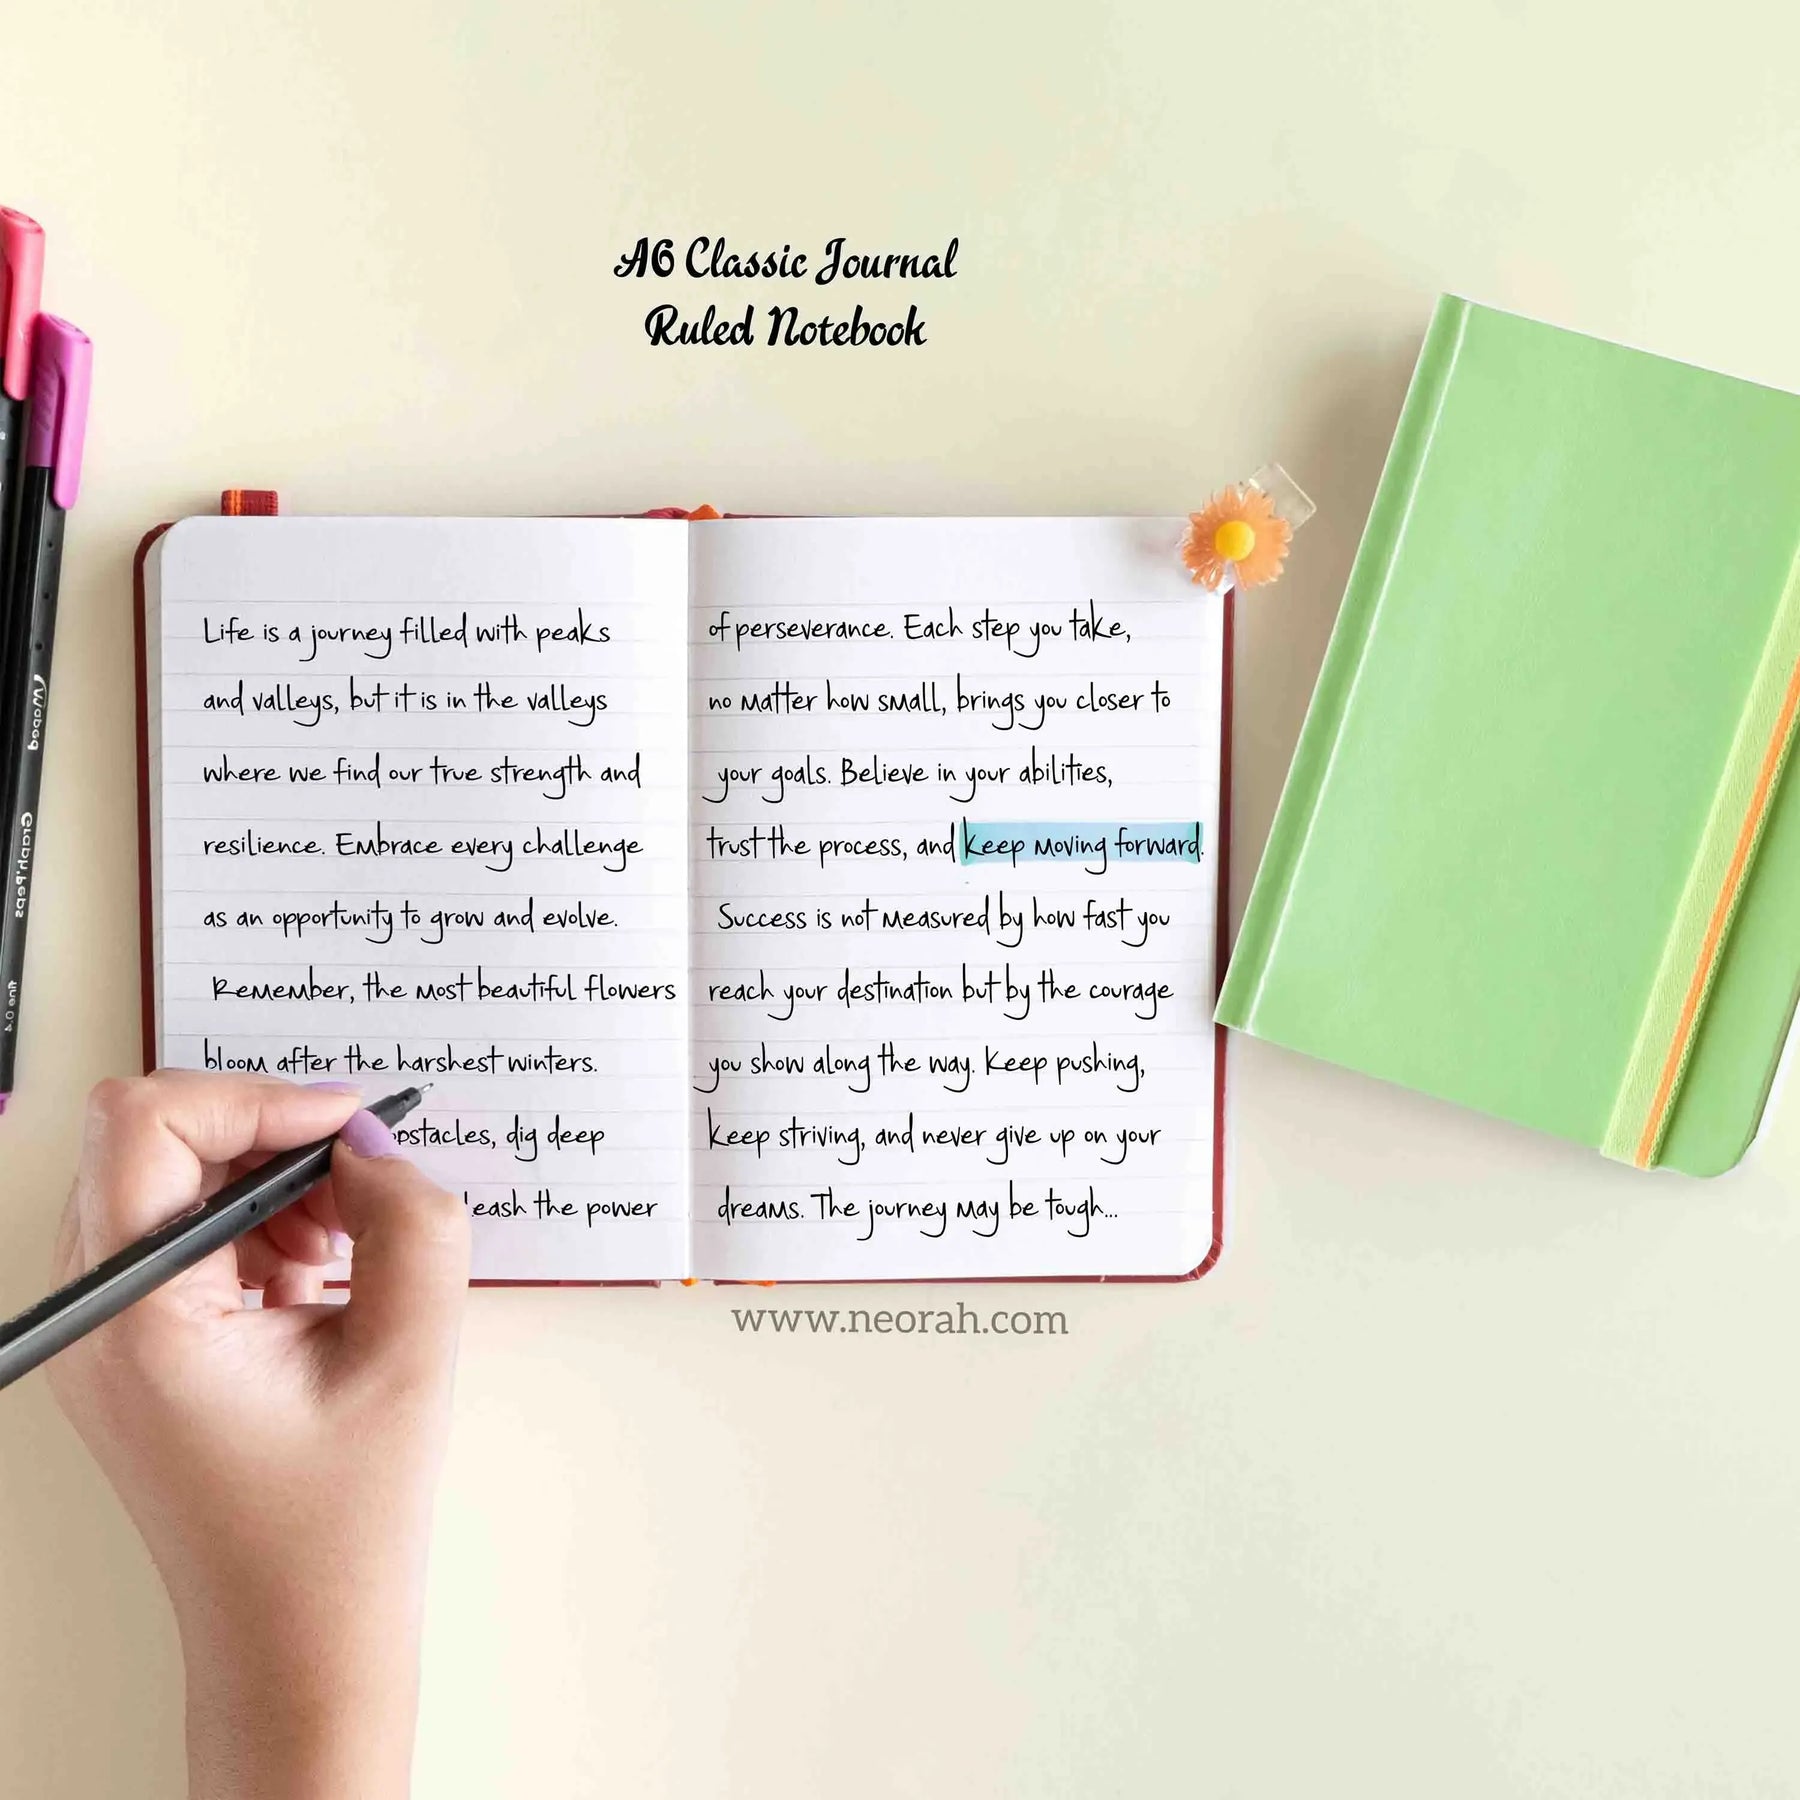 A6 Classic Journal
Ruled Notebook
Life is a journey filled with peaks
and valleys, but it is in the valleys
where we find our true strength and
resilience. Embrace every challenge
as an opportunity to grow and evolve.
Remember, the most beautiful flowers
bloom after the harshest winters.
dig deep
the power
of perseverance. Each step you take,
no matter how small, brings you closer to
your goals. Believe in your abilities,
trust the process, and keep moving forward.
Success is not measured by how fast you
reach your destination but by the courage
you show along the way. Keep pushing,
keep striving, and never give up on your
dreams. The journey may be tough...
www.neorah.com